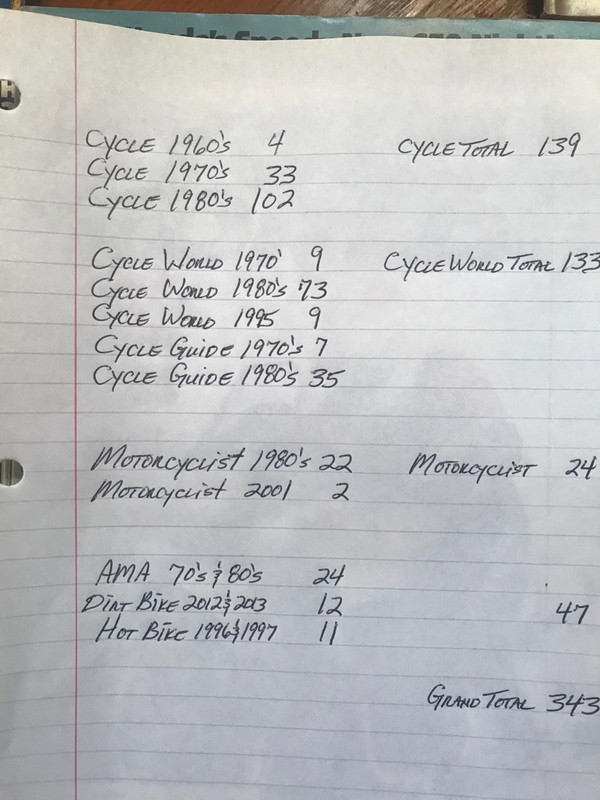 Cycle 1960's 4 Cycle Total 139
Cycle 1970's 33
Cycle 1980's 102
Cycle World 1970' 9 Cycle World Total 133
Cycle World 1980's 73
Cycle World 1995 9
Cycle Guide 1970's 7
Cycle Guide 1980's 35
Motorcyclist 1980's 22 Motorcyclist 24
Motorcyclist 2001 2
AMA 70's & 80's 24
Dirt Bike 2012 & 2013 12 47
Hot Bike 1996 & 1997 11
Grand Total 343